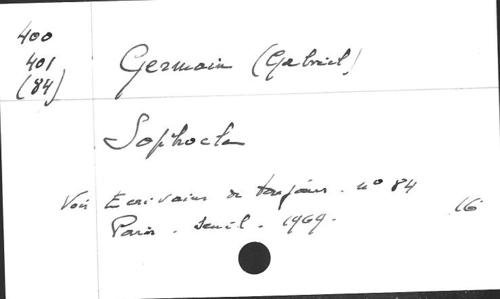 400
401
(84)
Germain (Gabriel)
Sophocle
Voir Ecrivains de toujours. n° 84
Paris. Seuil. 1969.
16